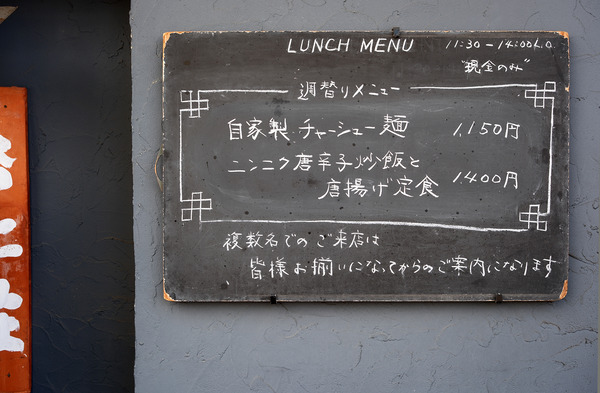 LUNCH MENU 11:30-14:00L.O.
"現金のみ"
週替りメニュー
自家製チャーシュー麺 1,150円
ニンニク唐辛子炒飯と
唐揚げ定食 1,400円
複数名でのご来店は
皆様お揃いになってからのご案内になります